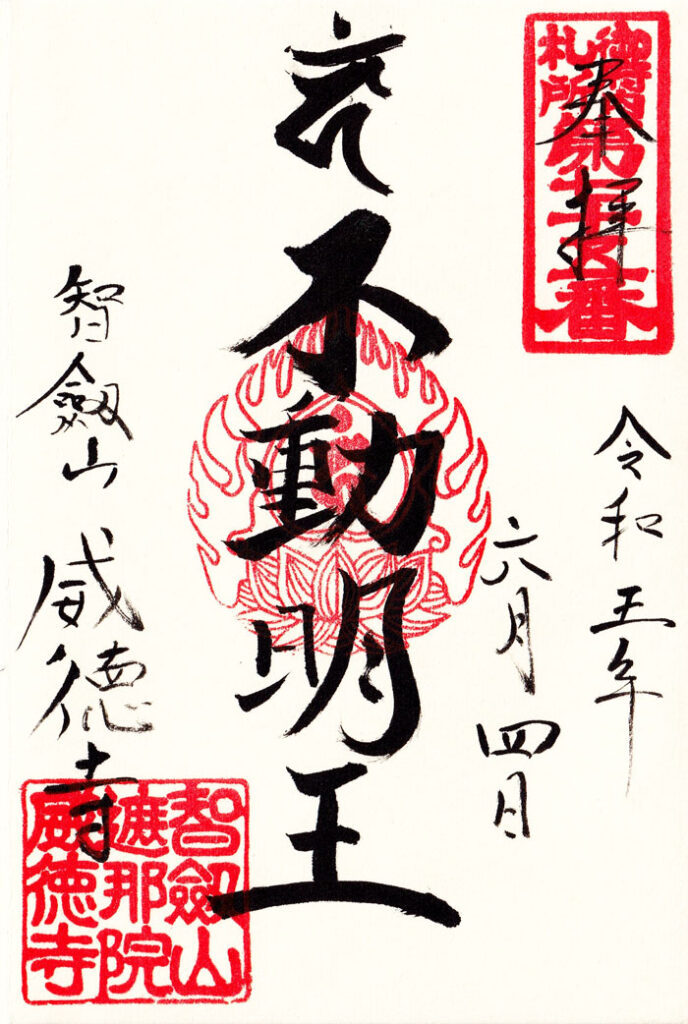 奉拝
札所第
番
令和五年
六月四日
不動明王
智劔山 威徳寺
智劔山
遮那院
威徳寺